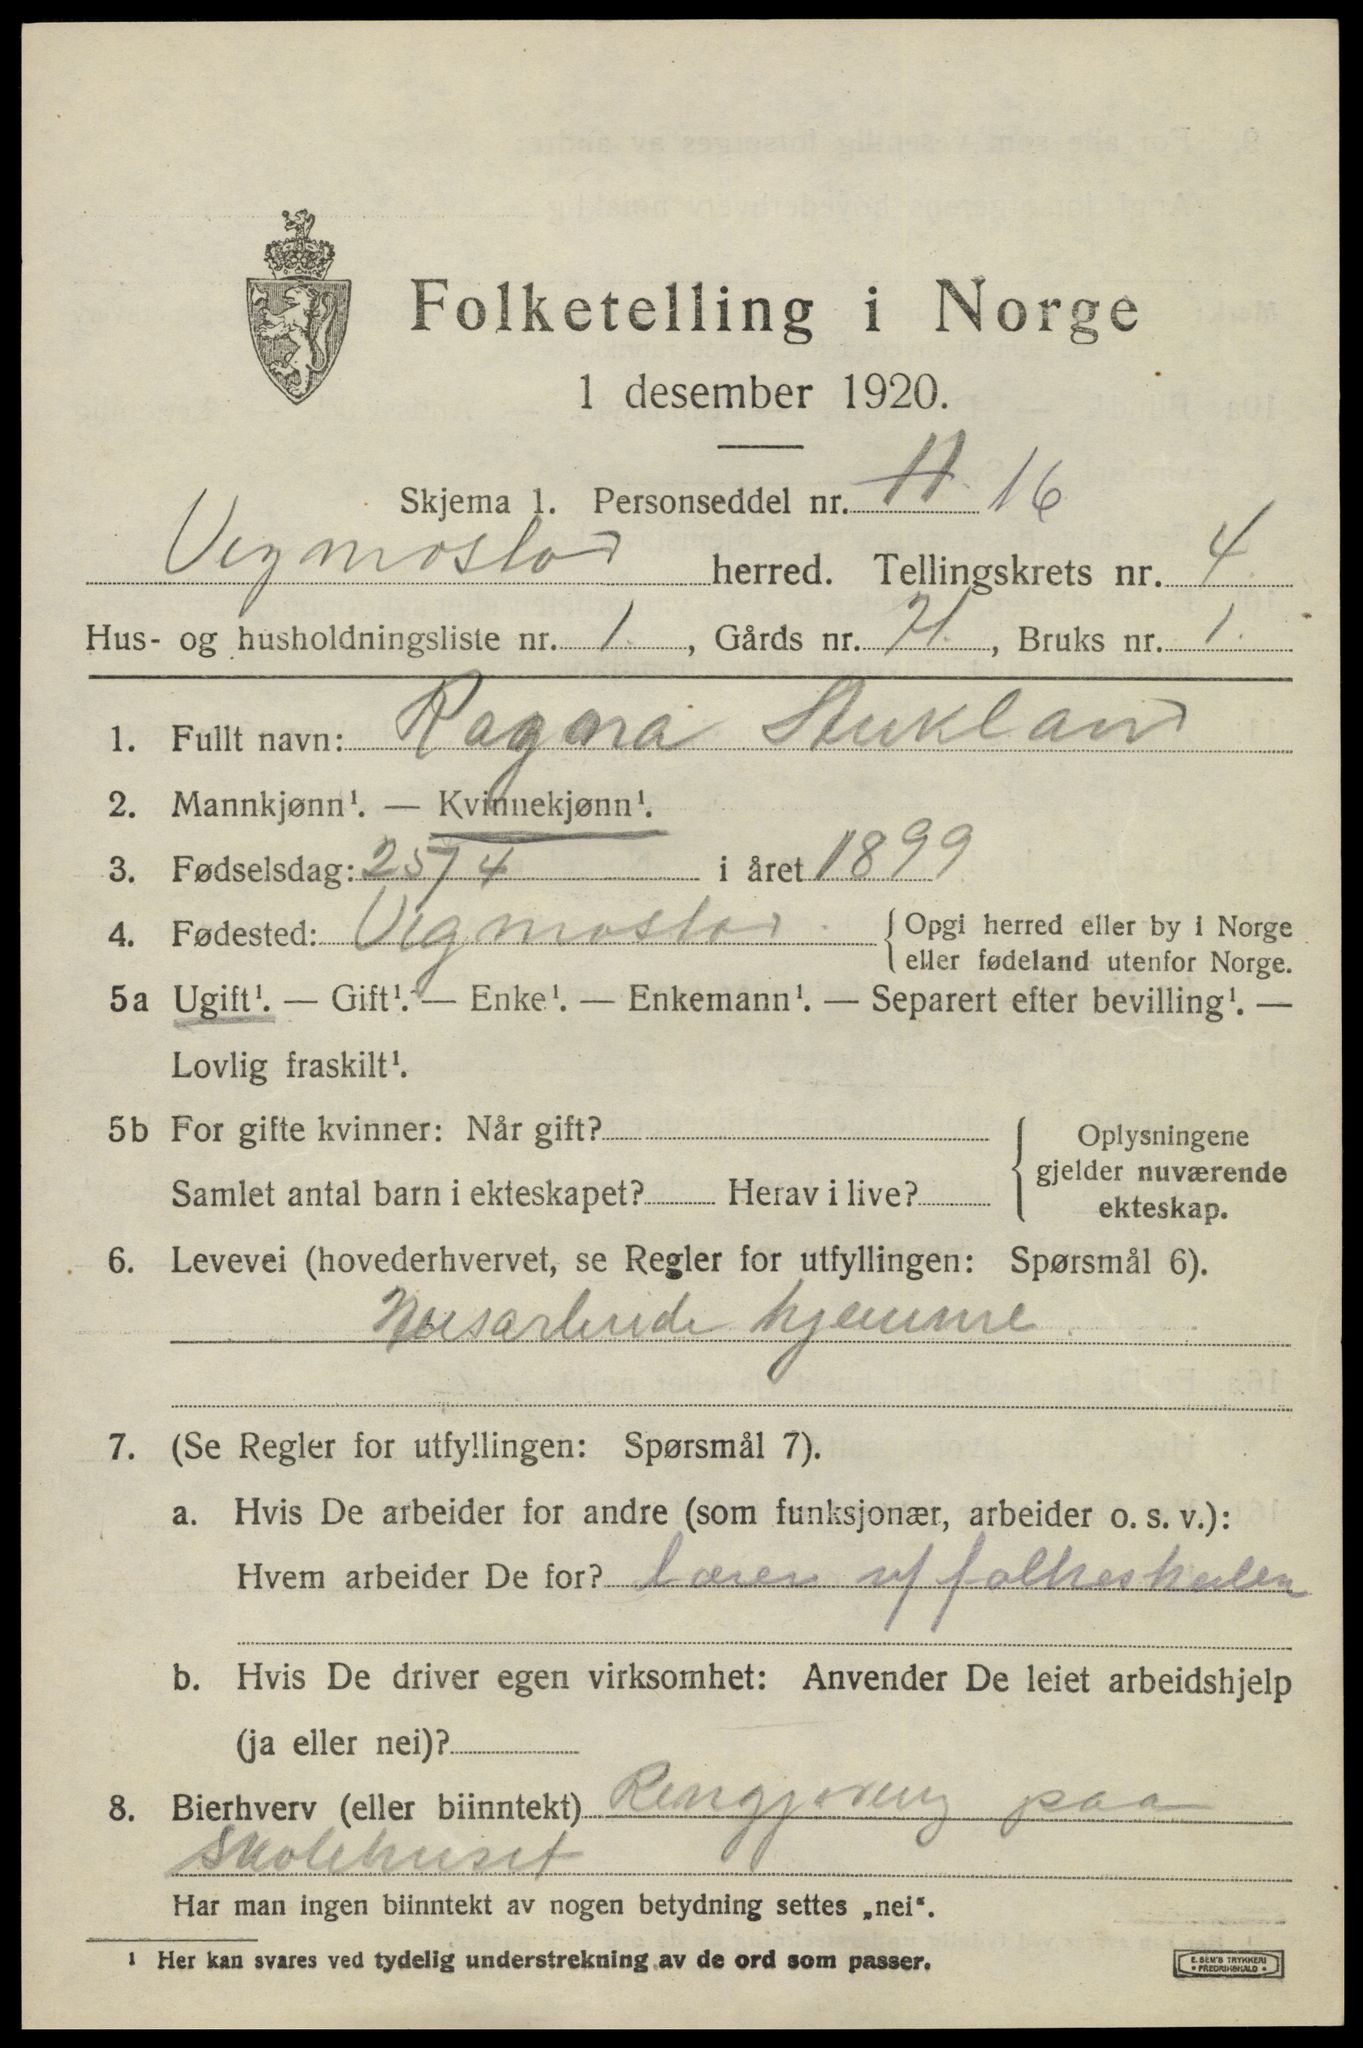 Folketelling i Norge
1 desember 1920.
Skjema 1. Personseddel nr. 16
Vegmostad herred. Tellingskrets nr. 4.
Hus- og husholdningsliste nr. 1., Gårds nr. 71., Bruks nr. 1.
1. Fullt navn: Ragna Stukland
2. Mannkjønn¹. — Kvinnekjønn¹.
3. Fødselsdag: 25/4 i året 1899
4. Fødested: Vegmostad. { Opgi herred eller by i Norge
eller fødeland utenfor Norge.
5a Ugift¹. — Gift¹. — Enke¹. — Enkemann¹. — Separert efter bevilling¹. —
Lovlig fraskilt¹.
5b For gifte kvinner: Når gift?
Samlet antal barn i ekteskapet? Herav i live?
Oplysningene
gjelder nuværende
ekteskap.
6. Levevei (hovederhvervet, se Regler for utfyllingen: Spørsmål 6).
Husarbeide hjemme.
7. (Se Regler for utfyllingen: Spørsmål 7).
a. Hvis De arbeider for andre (som funksjonær, arbeider o. s. v.):
Hvem arbeider De for? Lærer v/ folkeskulen
b. Hvis De driver egen virksomhet: Anvender De leiet arbeidshjelp
(ja eller nei)?
8. Bierhverv (eller biinntekt) Rengjøring paa
Skolehuset
Har man ingen biinntekt av nogen betydning settes „nei“.
¹ Her kan svares ved tydelig understrekning av de ord som passer.
E. SEM'S TRYKKERI
FREDRIKSHALD